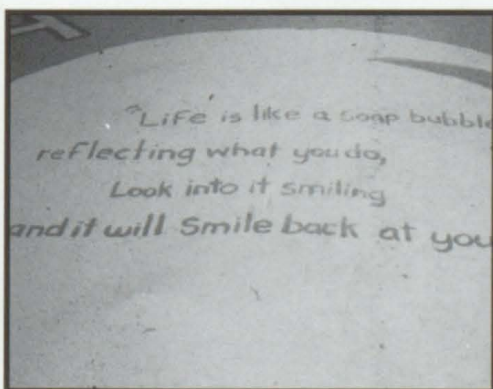 "Life is like a soap bubble
reflecting what you do,
Look into it smiling
and it will Smile back at you